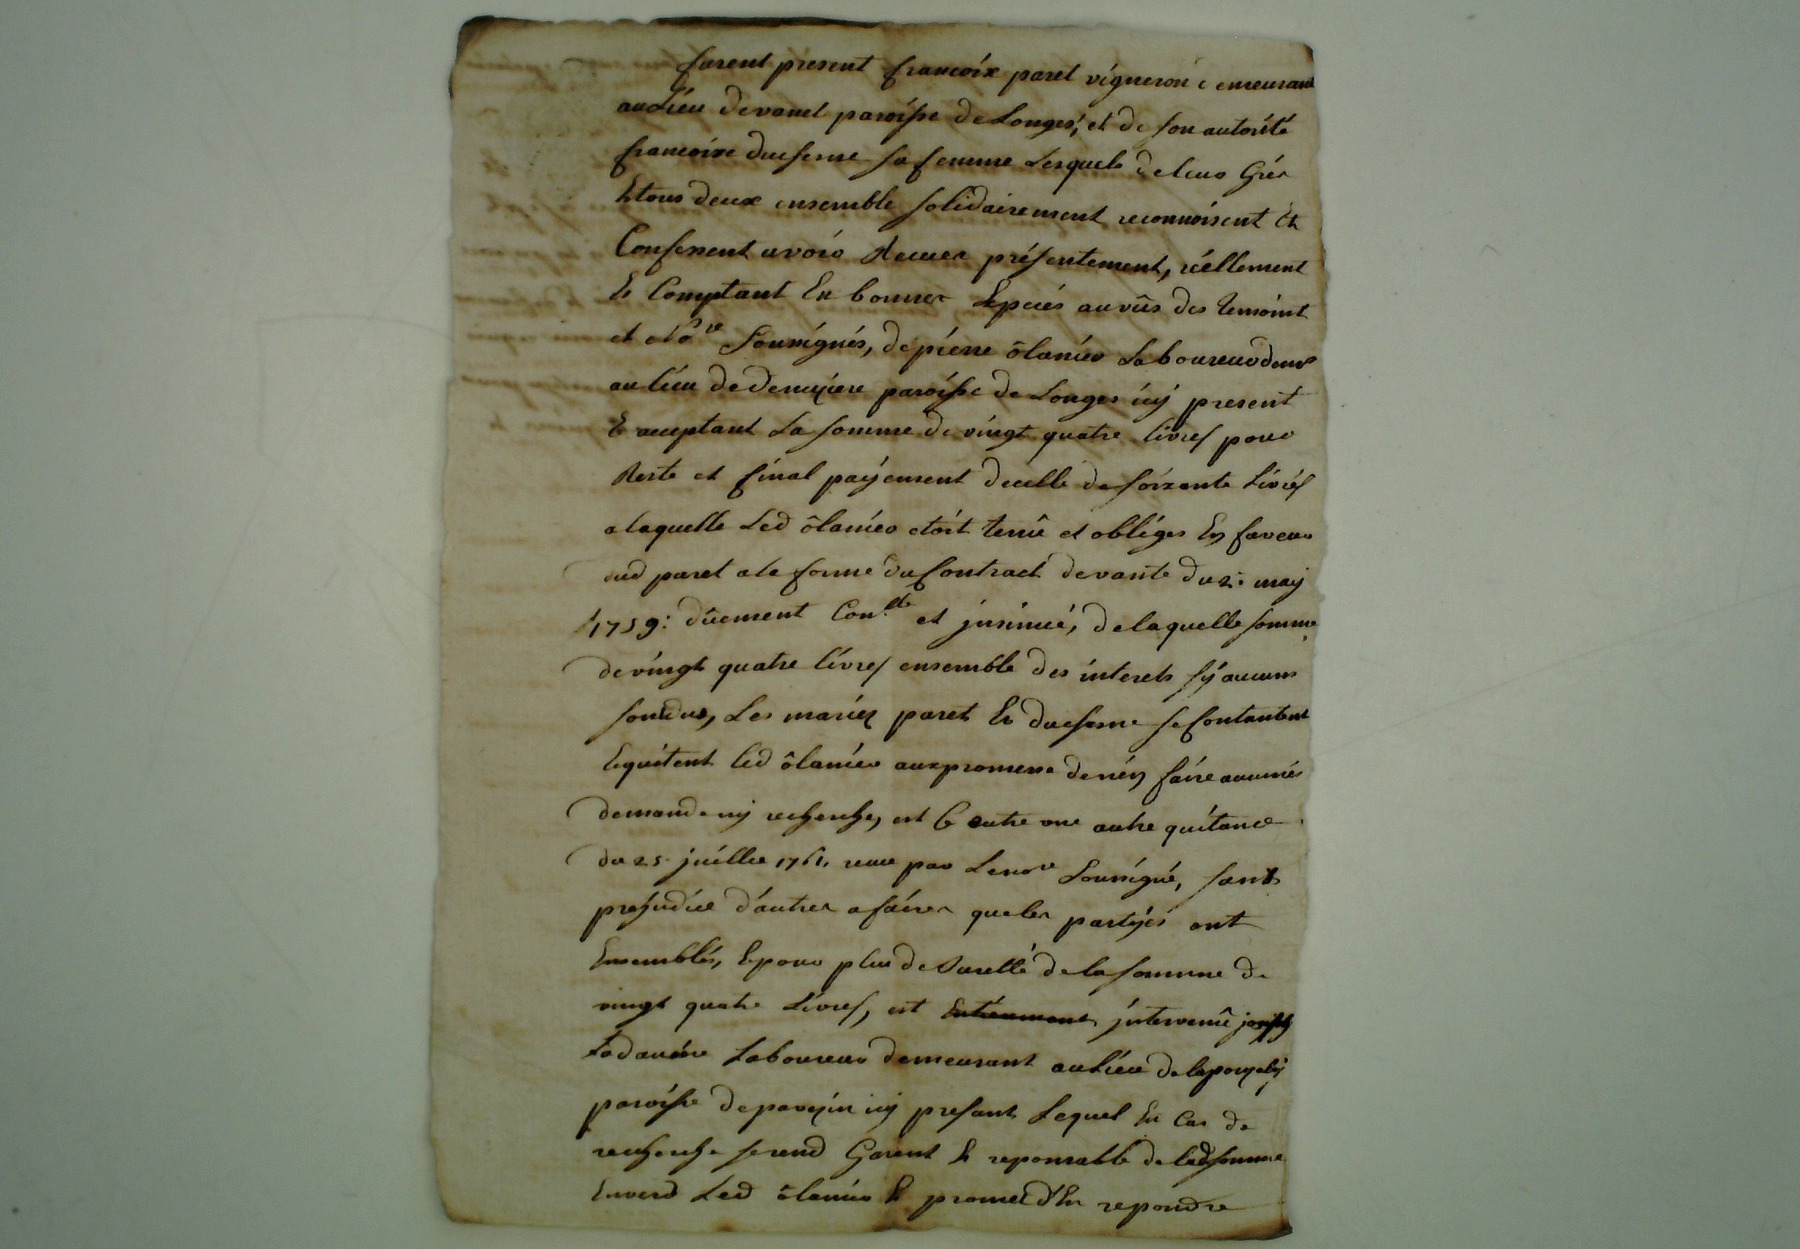 furent present françoix paret vigneron demeurant
au Lieu devanel paroisse de Longes, et de son autorité
françoise duchesne sa femme Lesquels de leurs Grés
Et tous deux ensemble solidairement reconnoisent Et
Confessent avoir Receues présentement, réellement
Et Comptant En bonnes Especes au vûs des temoins
et no.re Soussignés, de pierre ôlanier Laboureur dem.t
au lieu de Demizieu paroisse de Longes icy present
Et acceptant La somme de vingt quatre livres pour
Reste et final payement de celle de soixante Livres
a laquelle Led ôlanier etoit tenû et obliges En faveur
dud paret a la forme du Contract de vante du 2: may
1759: dûement Con.lé et insinué, de laquelle somme
de vingt quatre livres ensemble des interets sy aucuns
sont dus, Les mariez paret Et duchesne se Contantent
Equitent led ôlanier aux promesse de n'en faire aucunes
demande ny recherche, est Coutre une autre quitance
du 25 juillet 1761, receue par Le no.re Soussigné, sans
prejudice d'autres afaires que les partyes ont
Ensembles, Et pour plus de Suretté de la somme de
vingt quatre Livres, est intervenû joseph
Laboureur demeurant au Lieu de
paroisse de pavezin icy present Lequel En Cas de
recherche se rend Garent Et reponsable de lad somme
Envers Led ôlanier Et promet d'En repondre